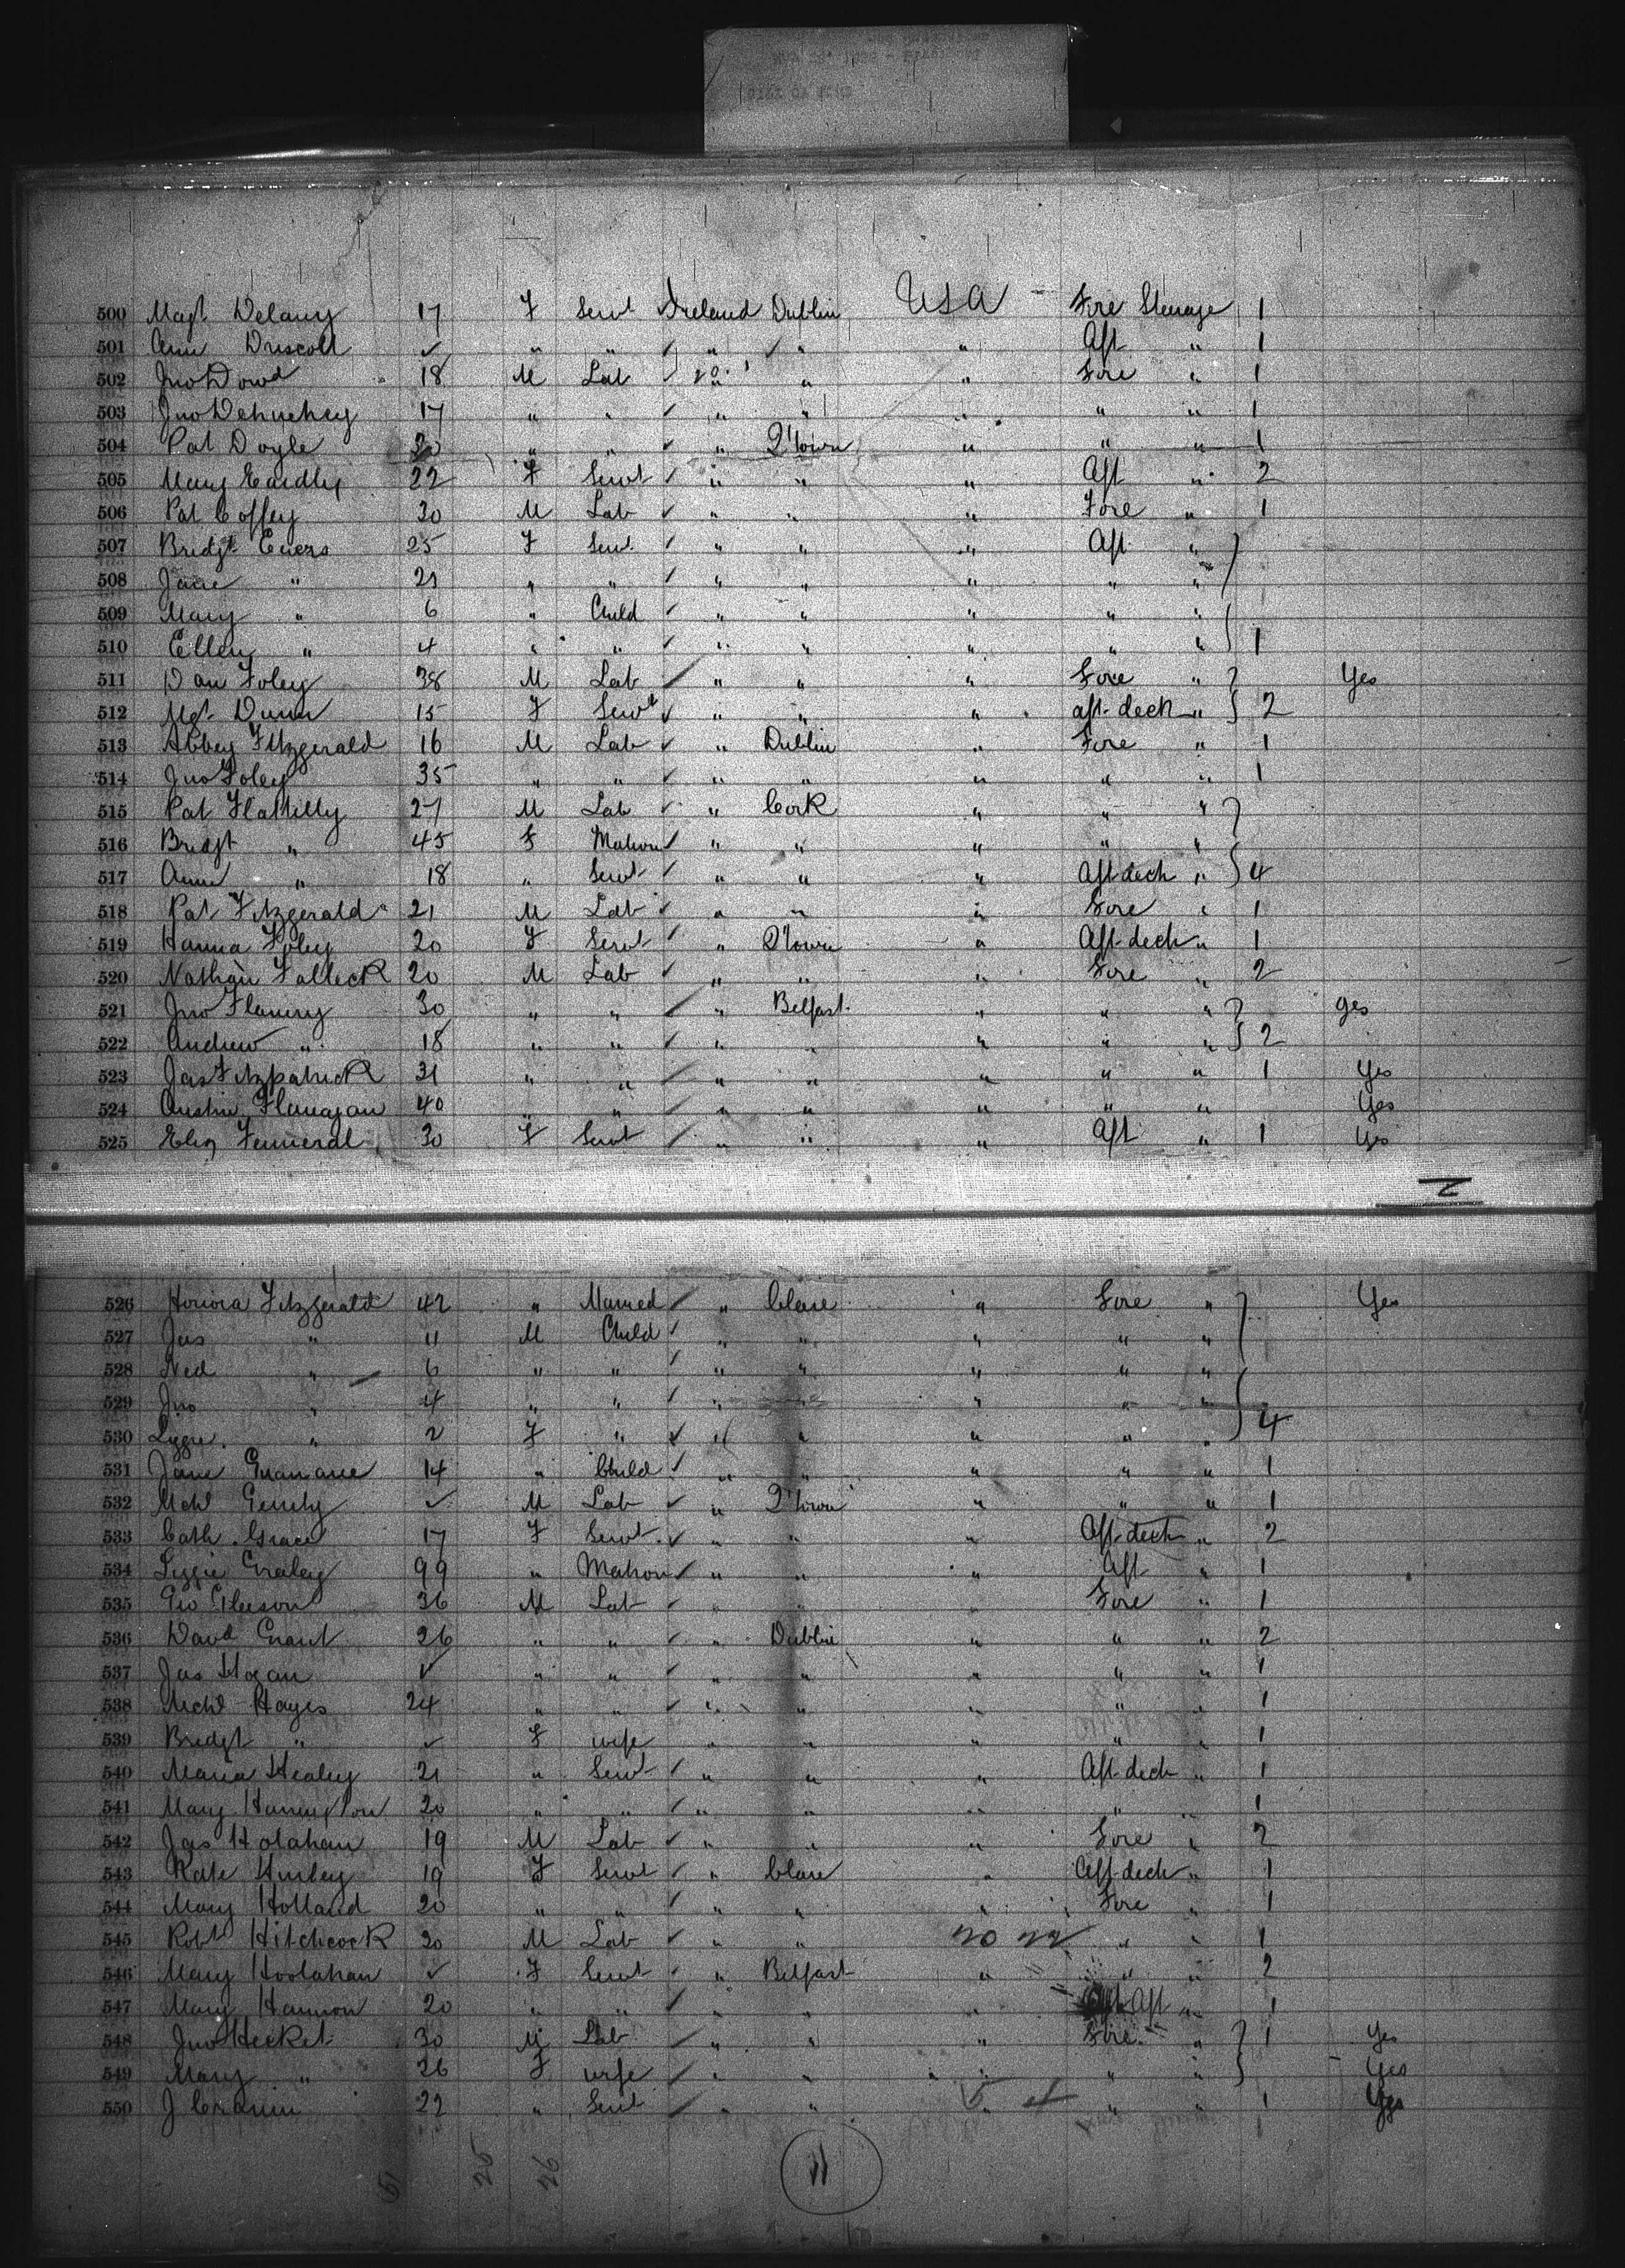 500 Magt Delany 17 F Servt Ireland Dublin USA Fore Steerage 1
501 Ann Driscoll ✓ " " ✓ " ✓ " " Aft " 1
502 Jno Dowd 18 M Lab ✓ " " " Fore " 1
503 Jno 17 " " ✓ " " " " " 1
504 Pat Doyle 20 " " ✓ " Q'town " " " 1
505 Mary Eardly 22 F Servt ✓ " " " Aft " 2
506 Pat Coffey 30 M Lab ✓ " " " Fore " 1
507 Bridgt Evers 25 F Servt ✓ " " " Aft "
508 Jane " 21 " " ✓ " " " " "
509 Mary " 6 " Child ✓ " " " " "
510 Ellen " 4 " " ✓ " " " " " 1
511 Dan Foley 38 M Lab ✓ " " " Fore " Yes
512 Mgt Dunn 15 F Servt ✓ " " " aft-deck " 2
513 Abbey Fitzgerald 16 M Lab ✓ " Dublin " Fore " 1
514 Jno Foley 35 " " ✓ " " " " " 1
515 Pat Flattilly 27 M Lab ✓ " Cork " " "
516 Bridgt " 45 F Matron ✓ " " " " "
517 Anne " 18 " Servt ✓ " " " Aft-deck " 4
518 Pat Fitzgerald 21 M Lab ✓ " " " Fore " 1
519 Hanna Foley 20 F Servt ✓ " Q'town " Aft-deck " 1
520 Nathan Falleck 20 M Lab ✓ " " " Fore " 2
521 Jno Fleming 30 " " ✓ " Belfast " " " yes
522 Andrew " 18 " " ✓ " " " " " 2
523 Jas Fitzpatrick 31 " " ✓ " " " " " 1 Yes
524 Austin Flanagan 40 " " ✓ " " " " " Yes
525 Eliz 30 F Servt ✓ " " " Aft " 1 Yes
526 Honora Fitzgerald 42 " Married ✓ " Clare " Fore " Yes
527 Jas " 11 M Child ✓ " " " " "
528 Ned " 6 " " ✓ " " " " "
529 Jno " 4 " " ✓ " " " " "
530 Lizzie " 2 F " ✓ " " " " " 4
531 Jane 14 " Child ✓ " " " " " 1
532 Mchl ✓ M Lab ✓ " Q'town " " " 1
533 Cath Grace 17 F Servt ✓ " " " Aft-deck " 2
534 Lizzie Grealey 99 " Matron ✓ " " " Aft " 1
535 Geo Gleeson 36 M Lab ✓ " " " Fore " 1
536 David Grant 26 " " ✓ " Dublin " " " 2
537 Jas Hogan ✓ " " ✓ " " " " " 1
538 Mchl Hayes 24 " " ✓ " " " " " 1
539 Bridgt " ✓ F wife " " " " " 1
540 Maria Healey 21 " Servt ✓ " " " Aft-deck " 1
541 Mary Harrington 20 " " ✓ " " " " " 1
542 Jas Holahan 19 M Lab ✓ " " " Fore " 2
543 Kate Hurley 19 F Servt ✓ " Clare " Aft-deck " 1
544 Mary Holland 20 " " ✓ " " " Fore " 1
545 Robt Hitchcock 20 M Lab ✓ " " " " 1
546 Mary Hoolahan ✓ F Servt ✓ " Belfast " " " 2
547 Mary Hannon 20 " " ✓ " " " Aft " 1
548 Jno Hecket 30 M Lab ✓ " " " Fore " 1 Yes
549 Mary " 26 F wife ✓ " " " " " Yes
550 J Cronin 22 " Servt ✓ " " " " " 1 Yes
11